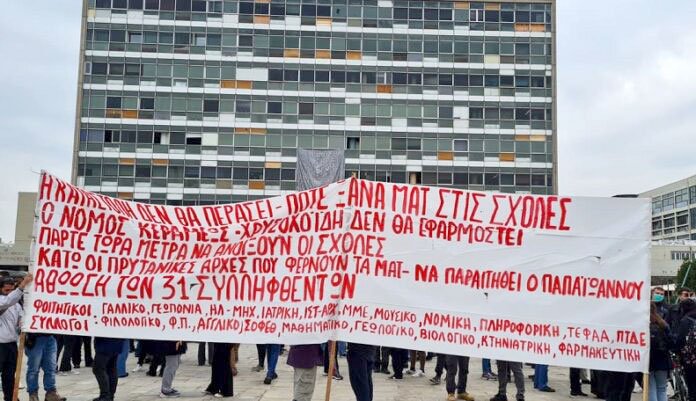 Η ΚΑΤΑΣΤΟΛΗ ΔΕΝ ΘΑ ΠΕΡΑΣΕΙ - ΠΟΤΕ ΞΑΝΑ ΜΑΤ ΣΤΙΣ ΣΧΟΛΕΣ
Ο ΝΟΜΟΣ ΚΕΡΑΜΕΩΣ - ΧΡΥΣΟΧΟΪΔΗ ΔΕΝ ΘΑ ΕΦΑΡΜΟΣΤΕΙ
ΠΑΡΤΕ ΤΩΡΑ ΜΕΤΡΑ ΝΑ ΑΝΟΙΞΟΥΝ ΟΙ ΣΧΟΛΕΣ
ΚΑΤΩ ΟΙ ΠΡΥΤΑΝΙΚΕΣ ΑΡΧΕΣ ΠΟΥ ΦΕΡΝΟΥΝ ΤΑ ΜΑΤ - ΝΑ ΠΑΡΑΙΤΗΘΕΙ Ο ΠΑΠΑΪΩΑΝΝΟΥ
ΑΘΩΩΣΗ ΤΩΝ 31 ΣΥΛΛΗΦΘΕΝΤΩΝ
ΦΟΙΤΗΤΙΚΟΙ : ΓΑΛΛΙΚΟ, ΓΕΩΠΟΝΙΑ, ΗΛ-ΜΗΧ, ΙΑΤΡΙΚΗ, ΙΣΤ-ΑΡΧ, ΜΜΕ, ΜΟΥΣΙΚΟ, ΝΟΜΙΚΗ, ΠΛΗΡΟΦΟΡΙΚΗ, ΤΕΦΑΑ, ΠΤΔΕ
ΣΥΛΛΟΓΟΙ : ΦΙΛΟΛΟΓΙΚΟ, Φ.Π., ΑΓΓΛΙΚΟ, ΣΟΦΕΘ, ΜΑΘΗΜΑΤΙΚΟ, ΓΕΩΛΟΓΙΚΟ, ΒΙΟΛΟΓΙΚΟ, ΚΤΗΝΙΑΤΡΙΚΗ, ΦΑΡΜΑΚΕΥΤΙΚΗ